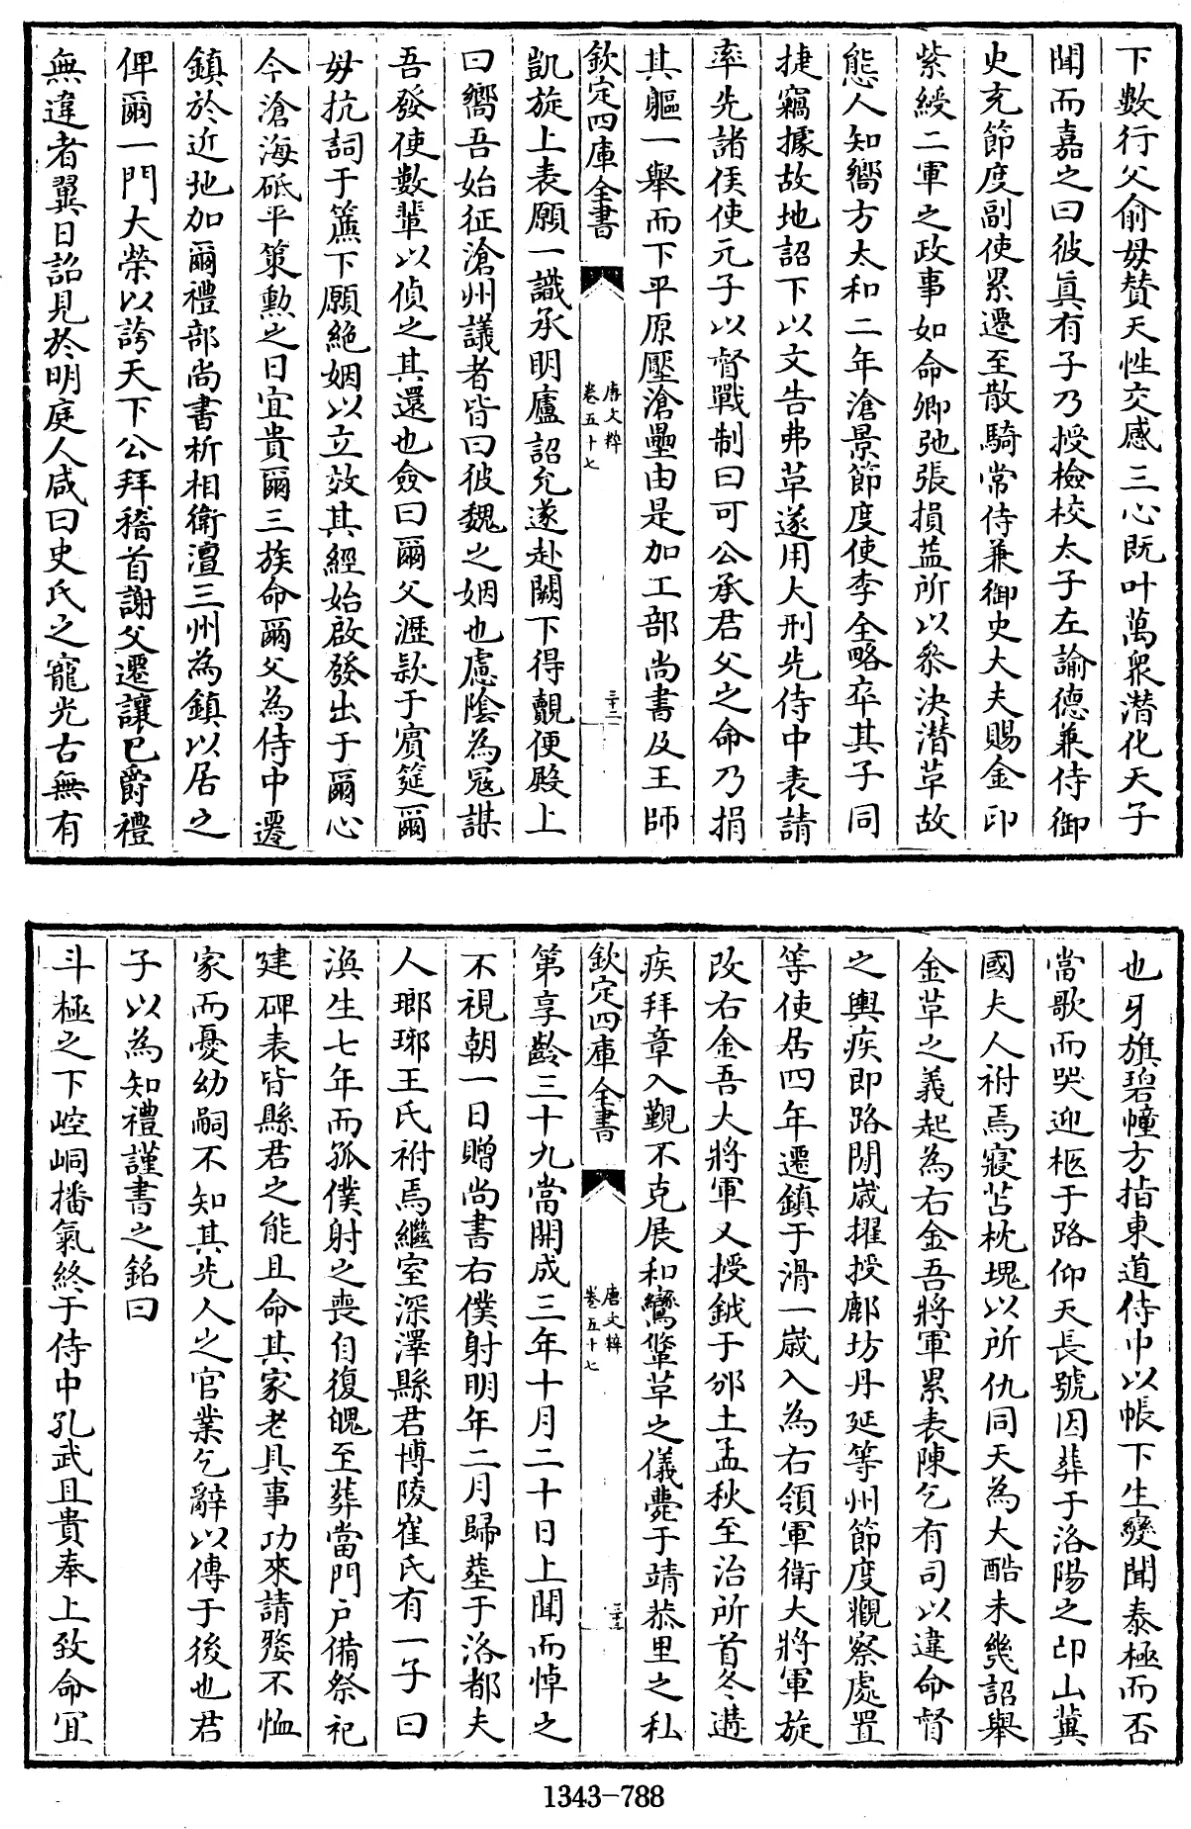 下數行父俞毋賛天性交感三心既叶萬衆潜化天子
聞而嘉之曰彼真有子乃授檢校太子左諭德兼侍御
史充節度副使累遷至散騎常侍兼御史大夫賜金印
紫綬二軍之政事如命卿弛張損益所以叅決潜革故
態人知嚮方太和二年滄景節度使李全略卒其子同
捷竊據故地詔下以文告弗革遂用大刑先侍中表請
率先諸侯使元子以督戰制曰可公承君父之命乃捐
其軀一舉而下平原壓滄壘由是加工部尚書及王師
欽定四庫全書
唐文粹
卷五十七
三十二
凱旋上表願一識承明廬詔允遂赴闕下得覿便殿上
曰嚮吾始征滄州議者皆曰彼魏之姻也慮陰為冦謀
吾發使數輩以偵之其還也僉曰爾父瀝款于賔筵爾
毋抗詞于簾下願絶姻以立效其經始啟發出于爾心
今滄海砥平策勲之日宜貴爾三族命爾父為侍中遷
鎮於近地加爾禮部尚書析相衛澶三州為鎮以居之
俾爾一門大榮以誇天下公拜稽首謝父遷讓已爵禮
無違者翼日詔見於明庭人咸曰史氏之寵光古無有
也牙旗碧幢方指東道侍中以帳下生變聞泰極而否
當歌而哭迎柩于路仰天長號因葬于洛陽之邙山冀
國夫人祔焉寢苫枕塊以所仇同天為大酷未幾詔舉
金革之義起為右金吾將軍累表陳乞有司以違命督
之輿疾即路閒歲擢授鄜坊丹延等州節度觀察處置
等使居四年遷鎮于滑一歲入為右領軍衛大將軍旋
改右金吾大將軍又授鉞于邠土孟秋至治所首冬遘
疾拜章入覲不克展和鸞鞗革之儀薨于靖恭里之私
欽定四庫全書
唐文粹
卷五十七
三十三
第享齡三十九當開成三年十月二十日上聞而悼之
不視朝一日贈尚書右僕射明年二月歸塟于洛都夫
人瑯琊王氏祔焉繼室深澤縣君博陵崔氏有一子曰
渙生七年而孤僕射之喪自復魄至葬當門户備祭祀
建碑表皆縣君之能且命其家老具事功來請嫠不恤
家而憂幼嗣不知其先人之官業乞辭以傳于後也君
子以為知禮謹書之銘曰
斗極之下崆峒播氣終于侍中孔武且貴奉上致命宜
1343-788